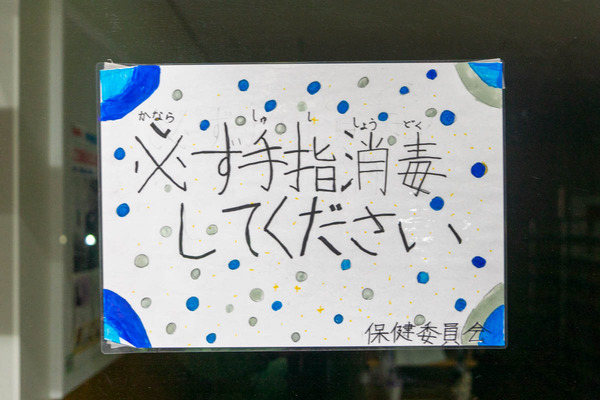 かなら しゅ し しょう どく
必ず手指消毒
してください
保健委員会